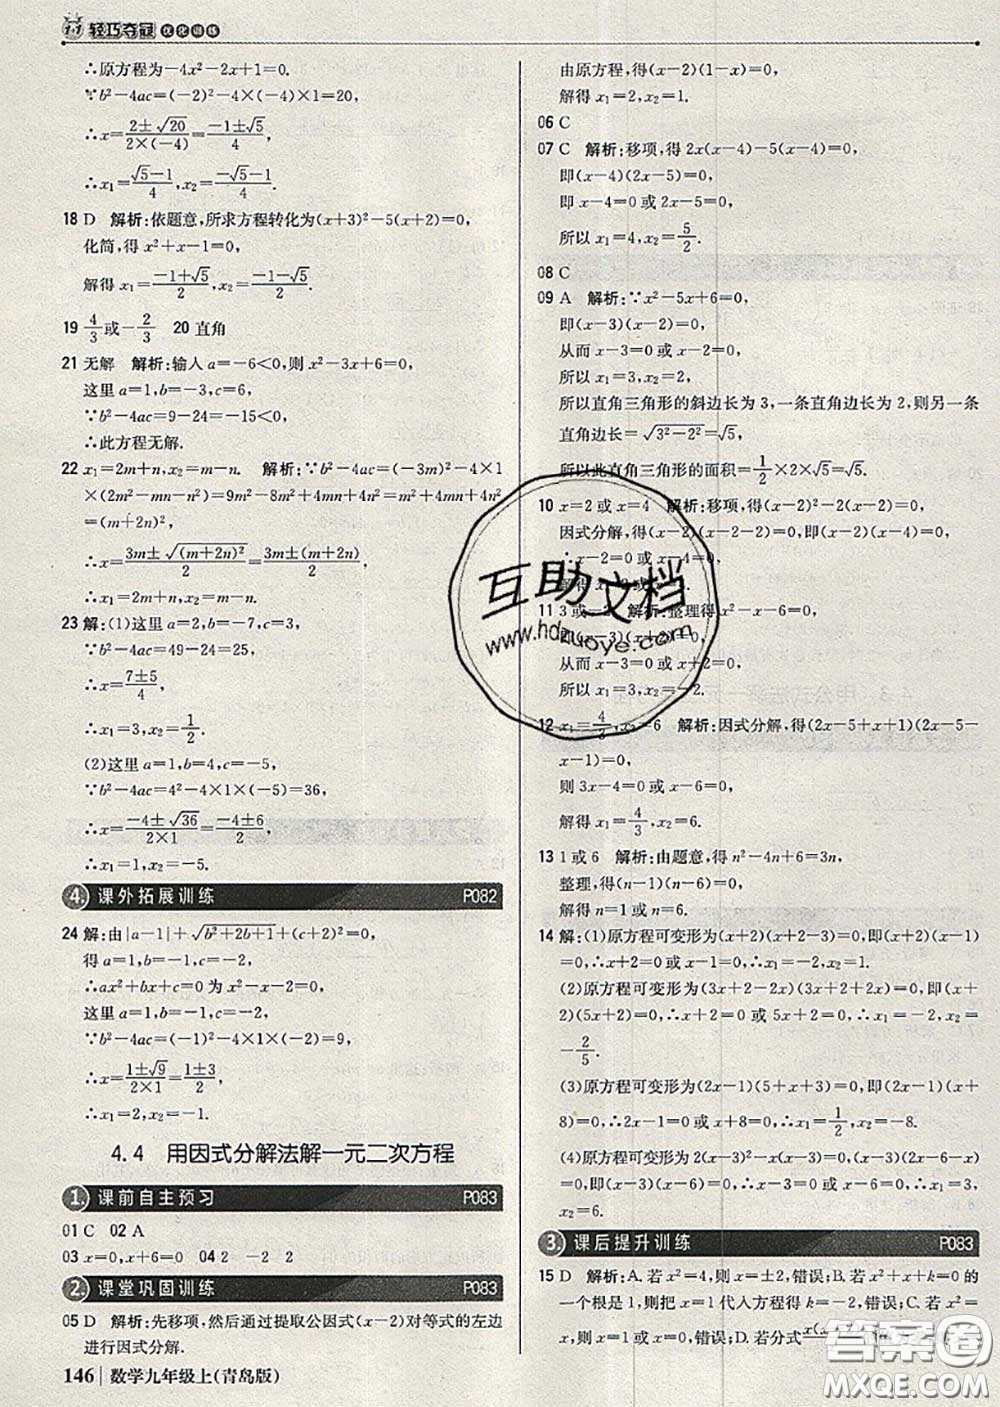 1+1 轻巧夺冠 优化训练
∴原方程为-4x²-2x+1=0.
∵b²-4ac=(-2)²-4×(-4)×1=20,
∴x=(2±√20)/(2×(-4))=(-1±√5)/4,
∴x₁=(√5-1)/4,x₂=(-√5-1)/4.
18 D 解析:依题意,所求方程转化为(x+3)²-5(x+2)=0,
化简,得 x²+x-1=0,
解得 x₁=(-1+√5)/2,x₂=(-1-√5)/2.
19 4/3或-2/3 20 直角
21 无解 解析:输入 a=-6<0,则 x²-3x+6=0,
这里 a=1,b=-3,c=6,
∵b²-4ac=9-24=-15<0,
∴此方程无解.
22 x₁=2m+n,x₂=m-n. 解析:∵b²-4ac=(-3m)²-4×1
×(2m²-mn-n²)=9m²-8m²+4mn+4n²=m²+4mn+4n²
=(m+2n)²,
∴x=(3m±√(m+2n)²)/(2×1)=(3m±(m+2n))/2,
∴x₁=2m+n,x₂=m-n.
23 解:(1)这里 a=2,b=-7,c=3,
∵b²-4ac=49-24=25,
∴x=(7±5)/4,
∴x₁=3,x₂=1/2.
(2)这里 a=1,b=4,c=-5,
∵b²-4ac=4²-4×1×(-5)=36,
∴x=(-4±√36)/(2×1)=(-4±6)/2,
∴x₁=1,x₂=-5.
4. 课外拓展训练 P082
24 解:由|a-1|+√(b²+2b+1)+(c+2)²=0,
得 a=1,b=-1,c=-2,
∴ax²+bx+c=0 为 x²-x-2=0,
这里 a=1,b=-1,c=-2,
∵b²-4ac=(-1)²-4×1×(-2)=9,
∴x=(1±√9)/(2×1)=(1±3)/2,
∴x₁=2,x₂=-1.
4.4 用因式分解法解一元二次方程
1. 课前自主预习 P083
01 C 02 A
03 x=0,x+6=0 04 2 -2 2
2. 课堂巩固训练 P083
05 D 解析:先移项,然后通过提取公因式(x-2)对等式的左边
进行因式分解.
146 数学九年级上(青岛版)
由原方程,得(x-2)(1-x)=0,
解得 x₁=2,x₂=1.
06 C
07 C 解析:移项,得 2x(x-4)-5(x-4)=0,
即(x-4)(2x-5)=0,
即 x-4=0 或 2x-5=0,
所以 x₁=4,x₂=5/2.
08 C
09 A 解析:∵x²-5x+6=0,
即(x-3)(x-2)=0,
从而 x-3=0 或 x-2=0,
所以 x₁=3,x₂=2,
所以直角三角形的斜边长为 3,一条直角边长为 2,则另一条
直角边长=√(3²-2²)=√5,
所以此直角三角形的面积=1/2×2×√5=√5.
10 x=2 或 x=4 解析:移项,得(x-2)²-2(x-2)=0,
因式分解,得(x-2)(x-2-2)=0,即(x-2)(x-4)=0,
∴x-2=0 或 x-4=0,
解得 x=2 或 x=4.
11 3 或-2 解析:整理得 x²-x-6=0,
即(x-3)(x+2)=0,
从而 x-3=0 或 x+2=0,
所以 x₁=3,x₂=-2.
12 x₁=4/3,x₂=6 解析:因式分解,得(2x-5+x+1)(2x-5-
x-1)=0,
则 3x-4=0 或 x-6=0,
解得 x₁=4/3,x₂=6.
13 1 或 6 解析:由题意,得 n²-4n+6=3n,
整理,得(n-1)(n-6)=0,
解得 n=1 或 n=6.
14 解:(1)原方程可变形为(x+2)(x+2-3)=0,即(x+2)(x-1)
=0,∴x+2=0 或 x-1=0,∴x₁=-2,x₂=1.
(2)原方程可变形为(3x+2+2x)(3x+2-2x)=0,即(x+
2)(5x+2)=0,∴x+2=0 或 5x+2=0,∴x₁=-2,x₂=
-2/5.
(3)原方程可变形为(2x-1)(5+x+3)=0,即(2x-1)(x+8)
=0,∴2x-1=0 或 x+8=0,∴x₁=1/2,x₂=-8.
(4)原方程可变形为2(x-3)²-x(x-3)=0,即(x-3)(2x-6-
x)=0,(x-3)(x-6)=0,∴x-3=0 或 x-6=0,∴x₁=3,
x₂=6.
3. 课后提升训练 P083
15 D 解析:A.若 x²=4,则 x=±2,错误;B.若 x²+x+k=0 的
一个根是 1,则把 x=1 代入方程得 k=-2,错误;C.若
x=0,错误;D.若分式
互助文档
www.hdzuoye.com
答案圈
MXQE.COM